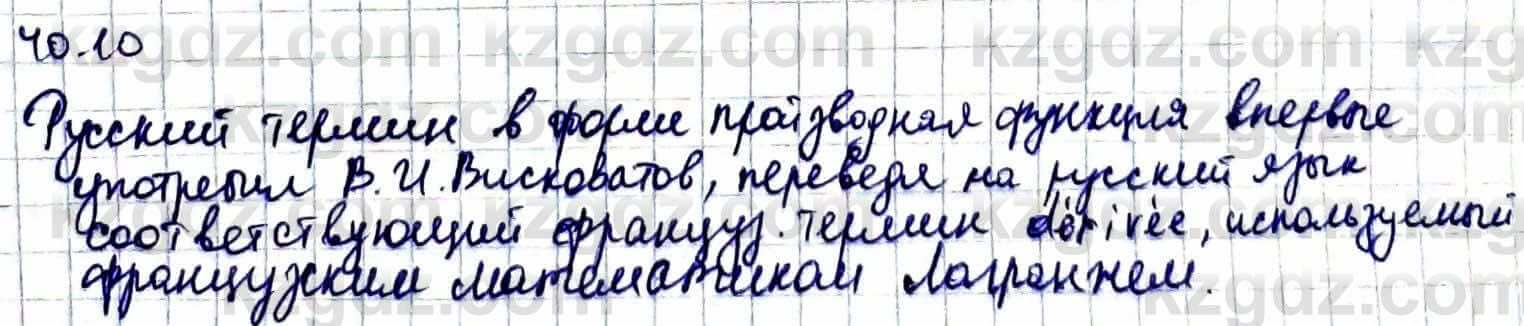 40.10
Русский термин в форме производная функция впервые
употребил В.И.Висковатов, переведя на русский язык
соответствующий француз. термин dérivée, используемый
французским математиком Лагранжем.